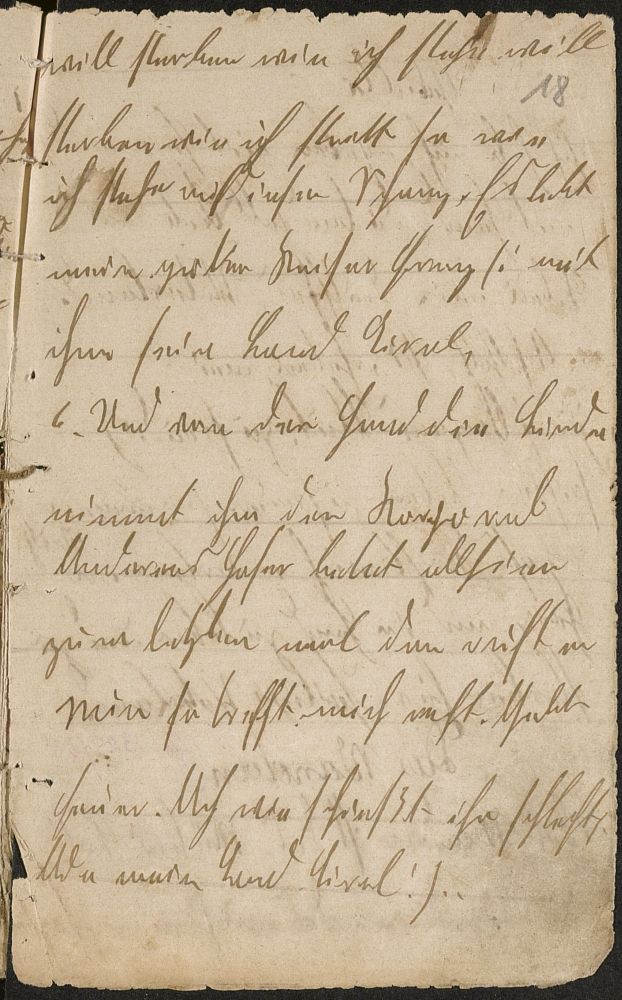 will sterben wie ich stehe will
18
sterben wie ich stritt so wie
ich stehe auf dieser Schanz. Es lebt
mein guter Kaiser Franz /: mit
ihm sein Land Tirol,
6. Und von der Hand die Binde
nimmt ihm der Korporal
Anderas Hofer betet allhier
zum letzten mal dan ruft er
nun so trefft mich recht. Gebt
Feuer. Ach wie schießt ihr schlecht,
Ade mein Land Tirol! :/..